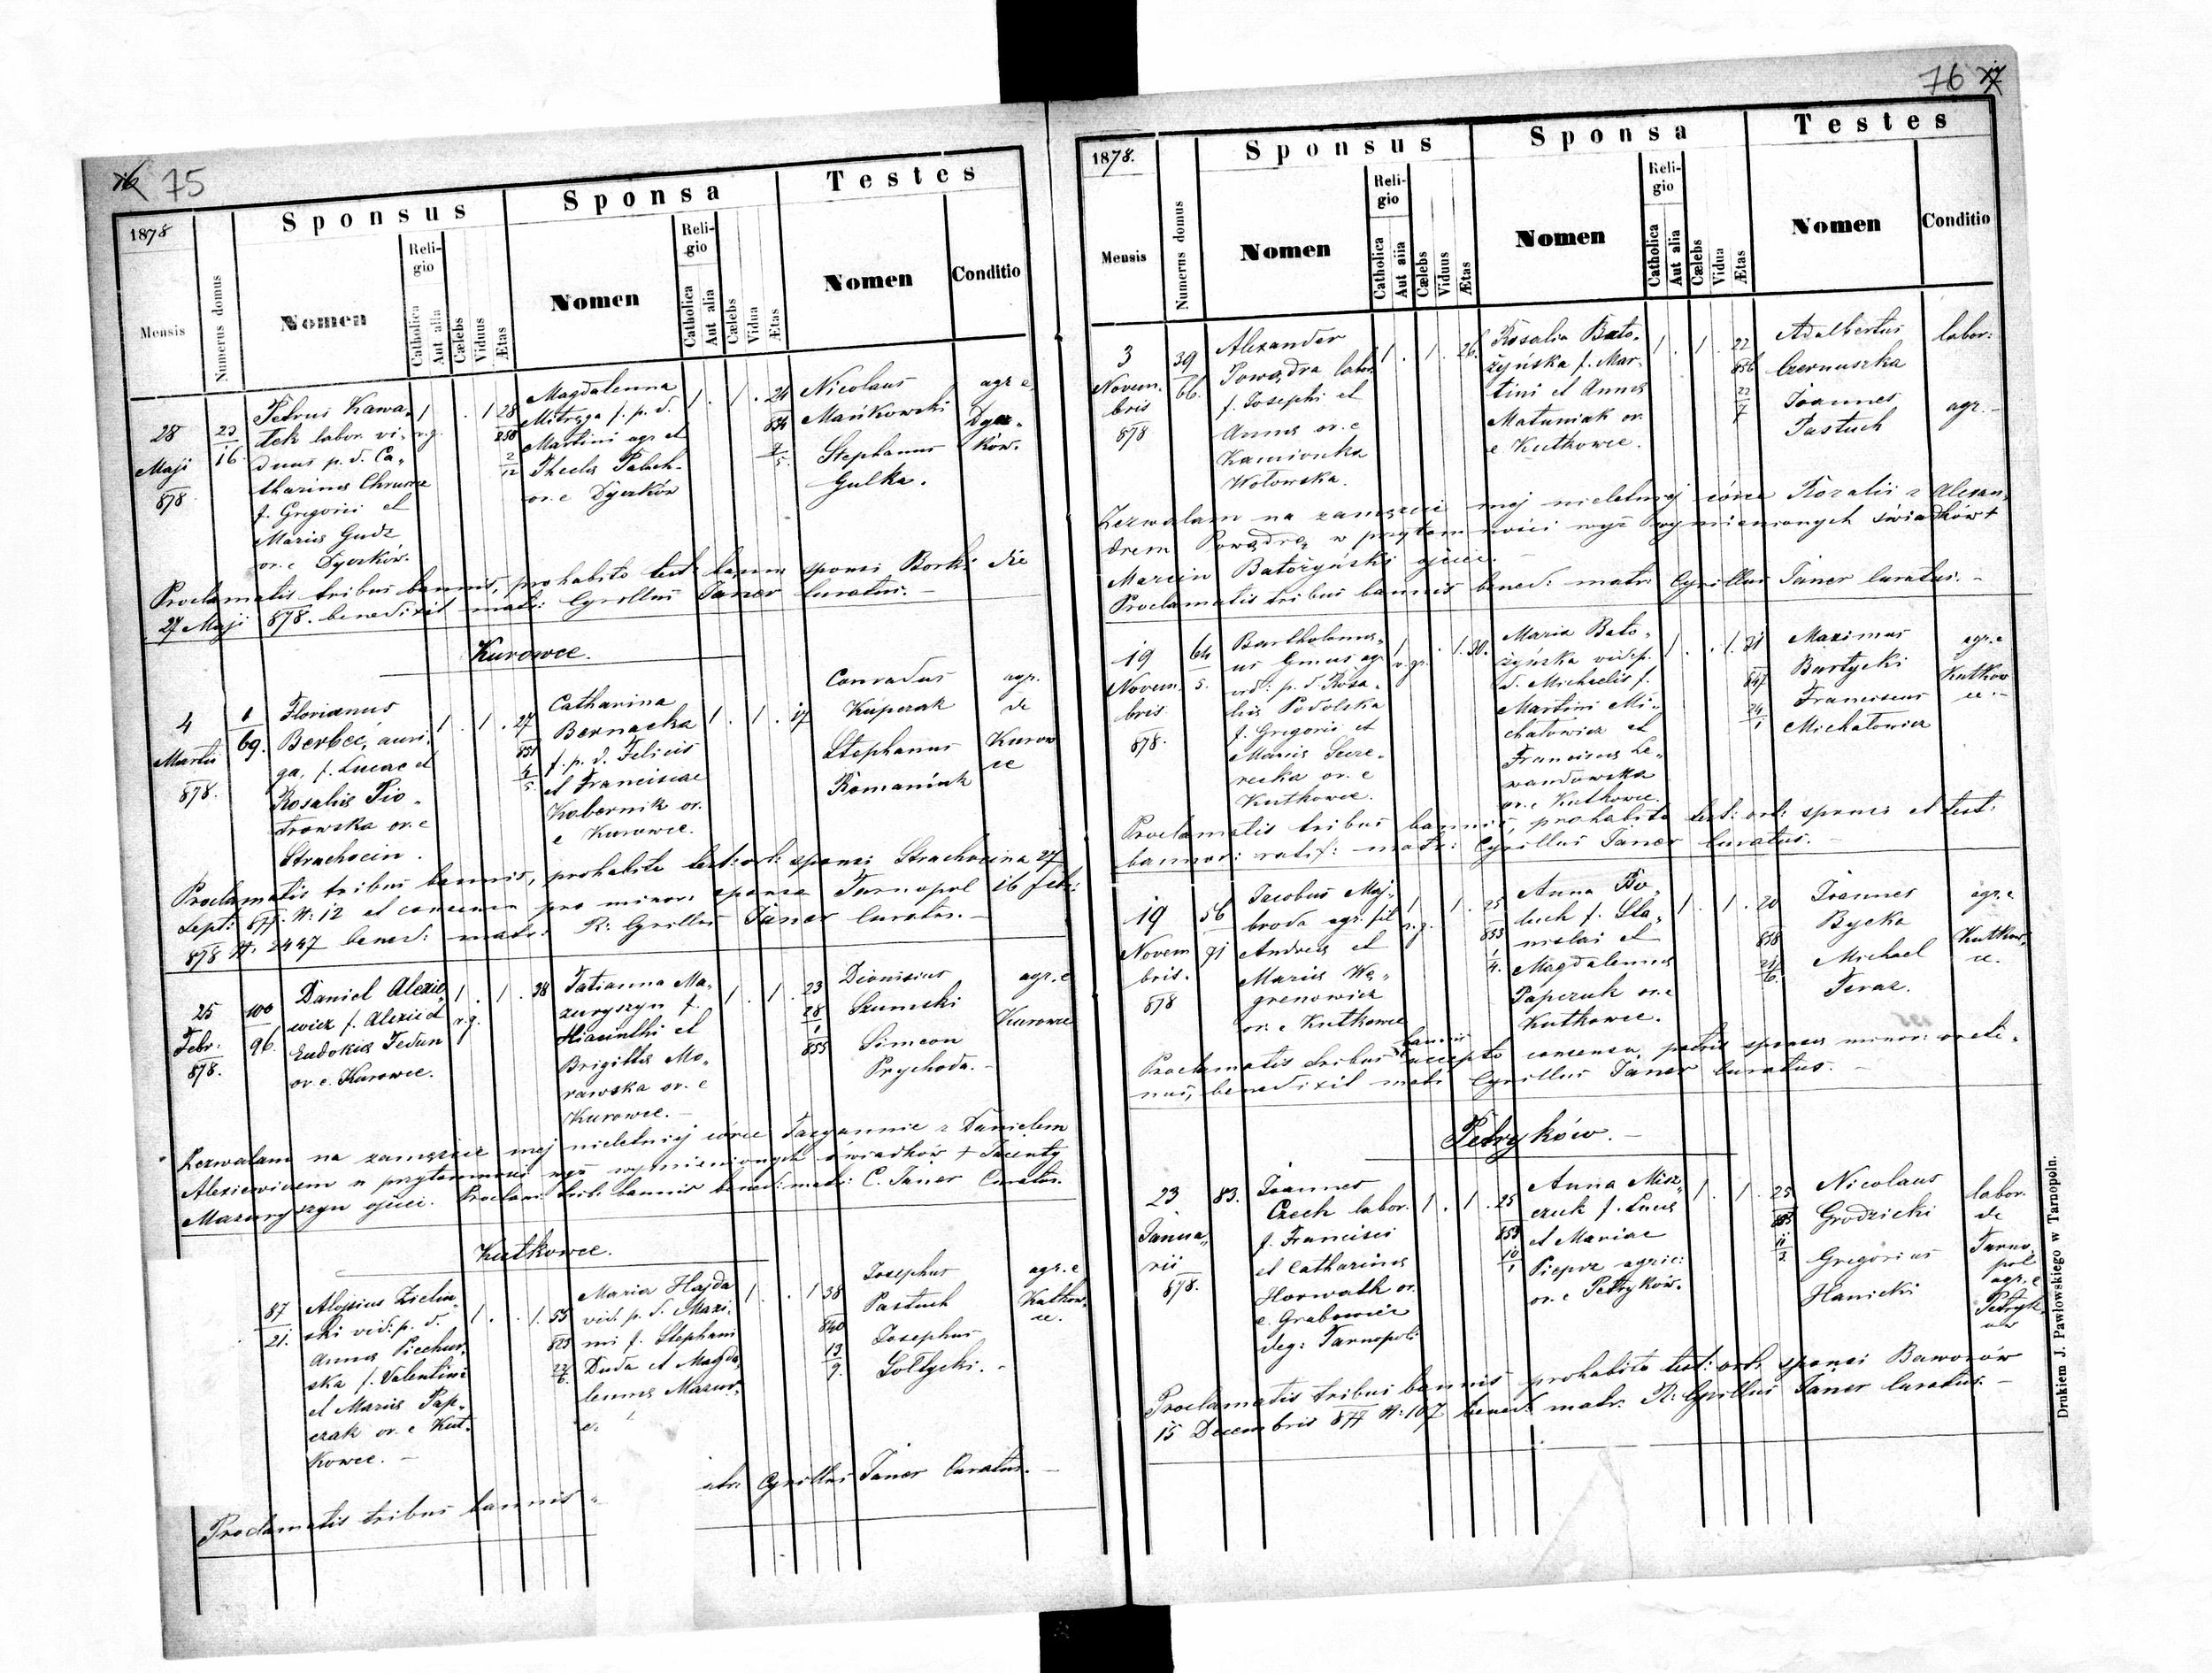 75
Sponsus Sponsa Testes
1878
Mensis
Numerus domus
Nomen
Religio
Catholica
Aut alia
Cælebs
Viduus
Ætas
Nomen
Religio
Catholica
Aut alia
Cælebs
Vidua
Ætas
Nomen
Conditio
28
Maji
878
23
16
Petrus Kawa„
tek labor. vi„
duus p. d. Ca„
tharina
f. Gregorii et
Maria Gudz
or. e Dyczków.
1
r.g.
. 1 28
Magdalenna
f. p. d.
Martini agr. et
Thecla
or. e Dyczków
1 . 1 . 24
Nicolaus
Mańkowski
Stephanus
Gulka.
agr. e
Dycz„
ków.
Proclamatis tribus bannis, prohabito test: bann: sponsi Borki die
27 Maji 878. benedixit matr: Cyrillus Janer Curatus. –
Kurowce.
4
Martii
878.
1
69.
Florianus
Berbeć, auri„
ga, f. Lucae et
Rosalia Pio„
trowska or. e
Strachocin.
1 . 1 . 27
851
Catharina
Bernacka
f. p. d. Felicis
et Franciscae
Kobernik or.
e Kurowce.
1 . 1 . 17
Conradus
Kuperak
Stephanus
Romaniuk
agr.
de
Kurow
ce
Proclamatis tribus bannis, prohabito test: ort: sponsi Strachocina 27
Sept: 877. N: 12 et consensu pro minor: sponsa Tarnopol 16 febr:
878 N. 2447 bened: matr: R: Cyrillus Janer Curatus. –
25
Febr.
878.
100
96.
Daniel Alexie„
wicz f. Alexii et
Eudokia Fedun
or. e. Kurowce.
1 . 1 . 38
r.g.
Tatianna Ma„
zuryszyn f.
Hiacinthi et
Brigitta Mo„
rawska or. e
Kurowce. –
1 . 1 . 23
28
1
855
Dionisius
Szumski
Simeon
Prychoda. –
agr. e
Kurowce
Zezwalam na zamęzcie mej nieletniej córce Tacyannie z Danielem
Alexiewiczem w przytomności wyż wymienionych świadków + Jacenty
Mazuryszyn ojciec. Proclam: trib: bannis bened: matr: C. Janer Curatus.
Kutkowce.
87
21.
Aloisius Zielin„
ski vid: p. d.
Anna Piechur„
ska f. Valentini
et Maria Pap„
czak or. e Kut„
kowce. –
1 . . 1. 55
823
Maria Hajda
vid. p. d. Maxi„
mi f. Stephani
Duda et Magda„
lenna Mazur„
e.
1 . . 1 38
840
13
9.
Josephus
Pastuch
Josephus
Sołtycki. –
agr. e
Kutkow„
ce.
Proclamatis tribus bannis „ atr: Cyrillus Janer Curatus. –
76
Sponsus Sponsa Testes
1878.
Mensis
Numerus domus
Nomen
Religio
Catholica
Aut alia
Cælebs
Viduus
Ætas
Nomen
Religio
Catholica
Aut alia
Cælebs
Vidua
Ætas
Nomen
Conditio
3
Novem„
bris
878
39
66.
Alexander
Powądra labor.
f. Josephi et
Anna or. e
Kamionka
Wołowska.
1 . 1 . 26.
Rosalia Bato„
żyńska f. Mar„
tini et Anna
Matuniak or.
e Kutkowce.
1 . 1 . 22
856
22
7
Adalbertus
Czernuszka
Joannes
Pastuch
labor:
agr. –
Zezwalam na zamęzcie mej nieletniej córce Rozalii z Alexan„
drem Powądrą w przytomności wyż wymienionych świadków +
Marcin Batożyński ojciec. –
Proclamatis tribus bannis bened: matr: Cyrillus Janer Curatus. –
19
Novem„
bris
878.
64
5.
Bartholomae„
us Gmus agr.
vid: p. d. Rosa„
lia Podolska
f. Gregorii et
Maria Seze„
recka or. e
Kutkowce.
1 . . 1. 30.
r. gr.
Maria Bato„
żyńska vid. p.
d. Michaelis f.
Martini Mi„
chałowicz et
Francisca Le„
wandowska
or. e Kutkowce.
1 . . 1. 31
847
24
1
Maximus
Bartycki
Franciscus
Michałowicz
agr. e
Kutkow
ce. –
Proclamatis tribus bannis, prohabito test: ort: sponsi et test:
bannor: ratif: matr: Cyrillus Janer Curatus. –
19
Novem
bris.
878
56
91
Jacobus Maj„
broda agr. fil
Andrea et
Maria Wę„
grenowicz
or. e Kutkowce
1 1 . 25
r.g.
853
1
4.
Anna Bo„
luch f. Sta„
nislai et
Magdalenna
Papczuk or. e
Kutkowce.
1 . 1 . 20
858
21
6.
Joannes
Bycka
Michael
Feraz.
agr. e
Kutkow„
ce.
Proclamatis tribus bannis accepto consensu, patris sponsa minor: orete„
nus, benedixit matr: Cyrillus Janer Curatus. –
Petryków. –
23
Janua„
rii
878.
83.
Joannes
Czech labor.
f. Francisci
et Catharina
Horwath or.
e. Grabowiec
deg: Tarnopoli
1 . 1 . 25
853
10
1
Anna Misz„
czuk f. Luca
et Mariae
Pieprz agric:
or. e Petryków.
1 . 1 . 25
11
2
Nicolaus
Grodzicki
Gregorius
Hanicki
labor.
de
Tarno„
pol
agr. e
Petryk„
ow
Proclamatis tribus bannis prohabito test: ort: sponsi Baworów
15 Decembris 877 N: 107 bened: matr. R: Cyrillus Janer Curatus. –
Drukiem J. Pawłowskiego w Tarnopolu.